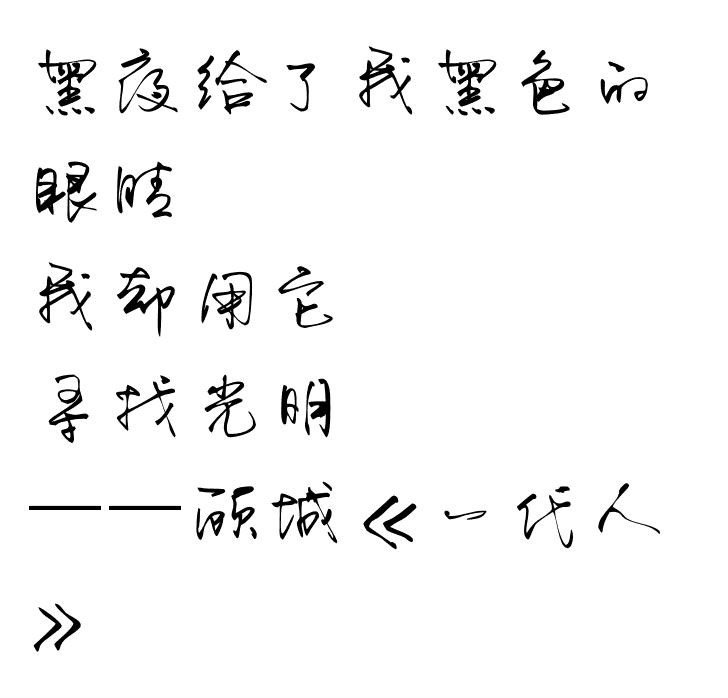 黑夜给了我黑色的
眼睛
我却用它
寻找光明
——顾城《一代人
》